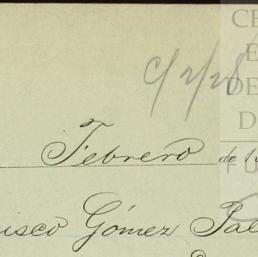 C/2/28
CE
E
DE
D
Febrero de 19
FU
isco Gómez Pal